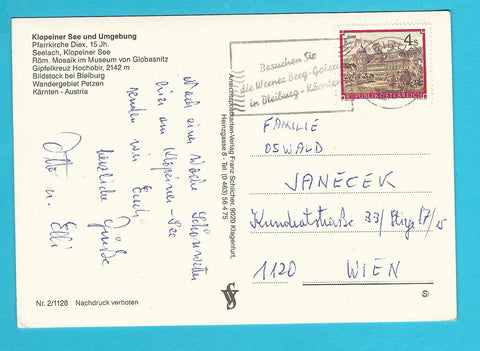 Klopeiner See und Umgebung
Pfarrkirche Diex, 15 Jh.
Seelach, Klopeiner See
Röm. Mosaik im Museum von Globasnitz
Gipfelkreuz Hochobir, 2142 m
Bildstock bei Bleiburg
Wandergebiet Petzen
Kärnten - Austria
Nach einer Woche Schönwetter
hier am Klopeiner-See
senden wir Euch
herzliche Grüße
Otto u. Elli
Nr. 2/1128 Nachdruck verboten
Ansichtspostkarten-Verlag Franz Schilcher, 9020 Klagenfurt,
Heinzgasse 8 - Tel. (0 463) 56 4 75
Besuchen Sie
die Werner Berg-Galerie
in Bleiburg-Kärnten
4 S
REPUBLIK ÖSTERREICH
FAMILIE
OSWALD
JANECEK
33/ 17/
1120 WIEN
S